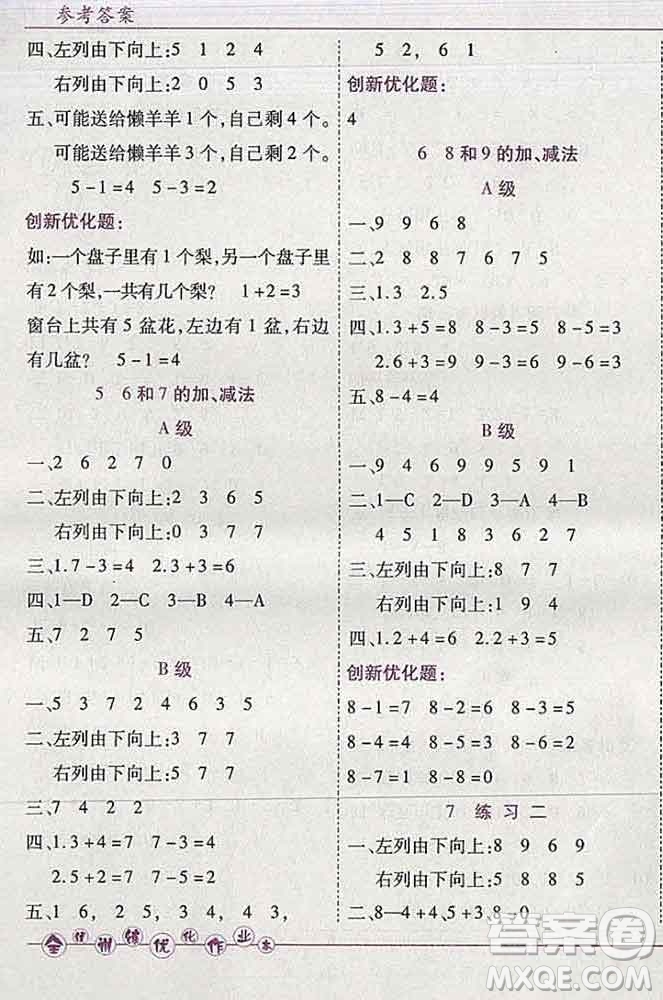 参考答案
四、左列由下向上:5 1 2 4
右列由下向上:2 0 5 3
五、可能送给懒羊羊1个,自己剩4个。
可能送给懒羊羊3个,自己剩2个。
5-1=4 5-3=2
创新优化题:
如:一个盘子里有1个梨,另一个盘子里
有2个梨,一共有几个梨? 1+2=3
窗台上共有5盆花,左边有1盆,右边
有几盆? 5-1=4
5 6和7的加、减法
A级
一、2 6 2 7 0
二、左列由下向上:2 3 6 5
右列由下向上:0 3 7 7
三、1.7-3=4 2.3+3=6
四、1—D 2—B 3—C 4—A
五、7 2 7 5
B级
一、5 3 7 2 4 6 3 5
二、左列由下向上:3 7 7
右列由下向上:5 7 7
三、7 4 2 2
四、1.3+4=7 7-3=4
2.5+2=7 7-5=2
五、1 6, 2 5, 3 4, 4 3,
5 2, 6 1
创新优化题:
4
6 8和9的加、减法
A级
一、9 9 6 8
二、2 8 8 7 6 7 5
三、1.3 2.5
四、1.3+5=8 8-3=5 8-5=3
2.6+3=9 9-3=6 9-6=3
五、8-4=4
B级
一、9 4 6 9 9 5 9 1
二、1—C 2—A 3—D 4—B
4 5 1 8 3 6 2 7
三、左列由下向上:8 7 7
右列由下向上:1 9 4
四、1.2+4=6 2.2+3=5
创新优化题:
8-1=7 8-2=6 8-3=5
8-4=4 8-5=3 8-6=2
8-7=1 8-8=0
7 练习二
一、左列由下向上:8 9 6 9
右列由下向上:5 8 8 5
二、8—4+4,5 9—7 8-0
全程训练优化作业本
答案圈
MXQE.COM